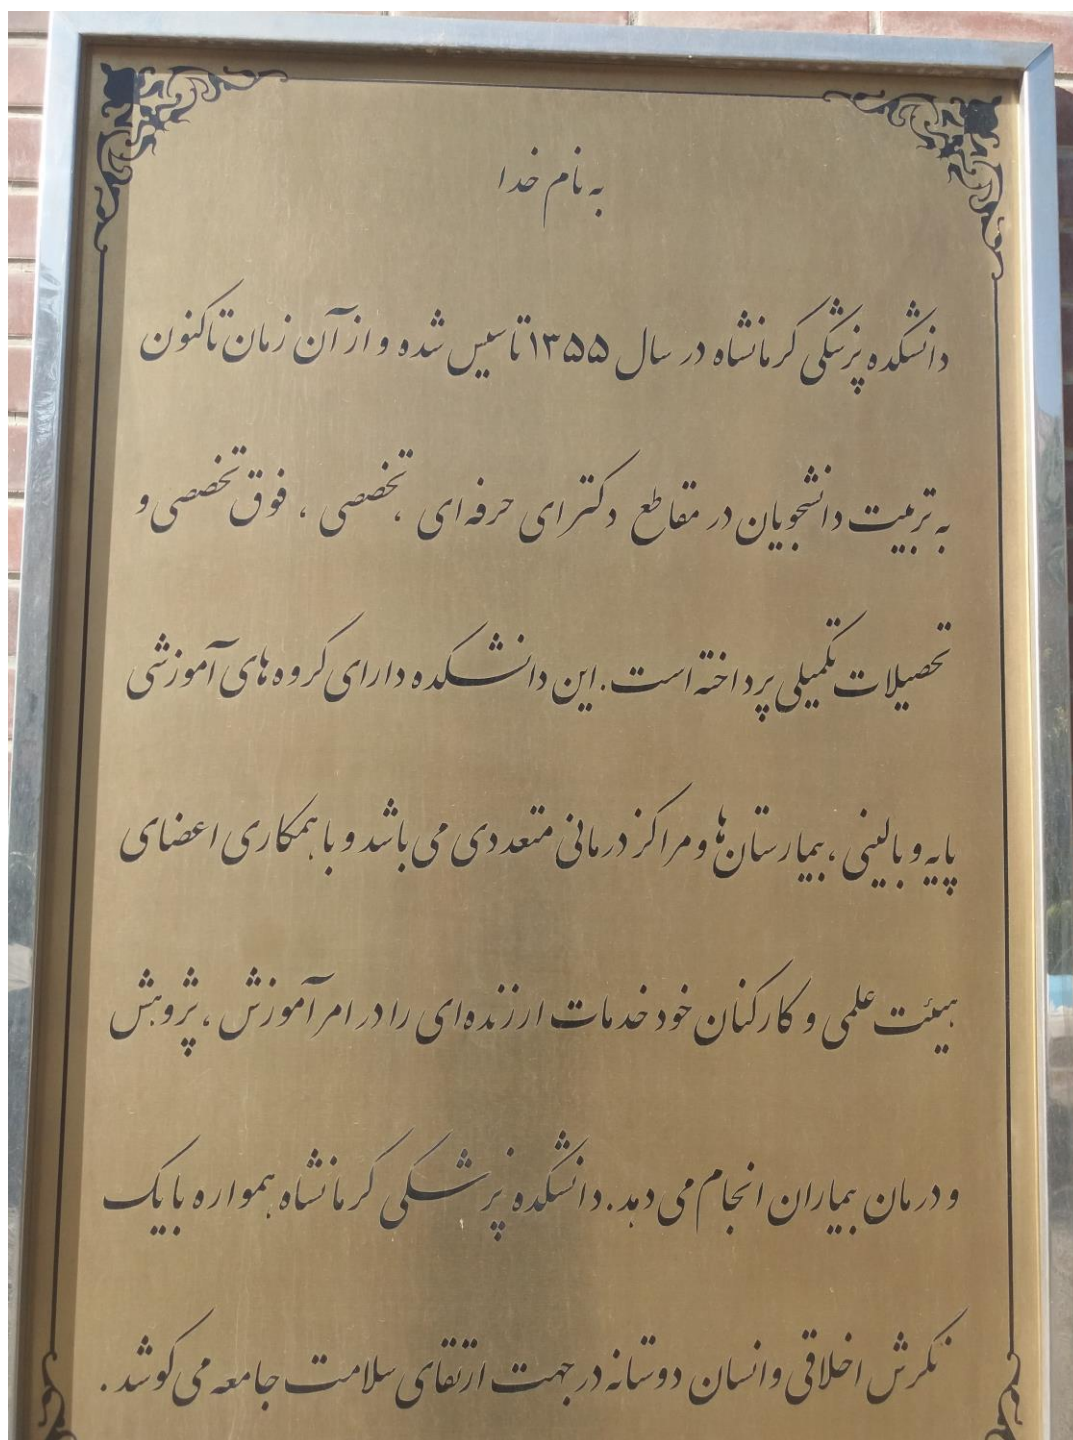 به نام خدا
دانشکده پزشکی کرمانشاه در سال ۱۳۵۵ تاسیس شده و از آن زمان تاکنون
به تربیت دانشجویان در مقاطع دکترای حرفه ای ، تخصصی ، فوق تخصصی و
تحصیلات تکمیلی پرداخته است. این دانشکده دارای گروه های آموزشی
پایه و بالینی ، بیمارستان ها و مراکز درمانی متعددی می باشد و با همکاری اعضای
هیئت علمی و کارکنان خود خدمات ارزنده ای را در امر آموزش ، پژوهش
و درمان بیماران انجام می دهد. دانشکده پزشکی کرمانشاه همواره با یک
نگرش اخلاقی و انسان دوستانه در جهت ارتقای سلامت جامعه می کوشد .